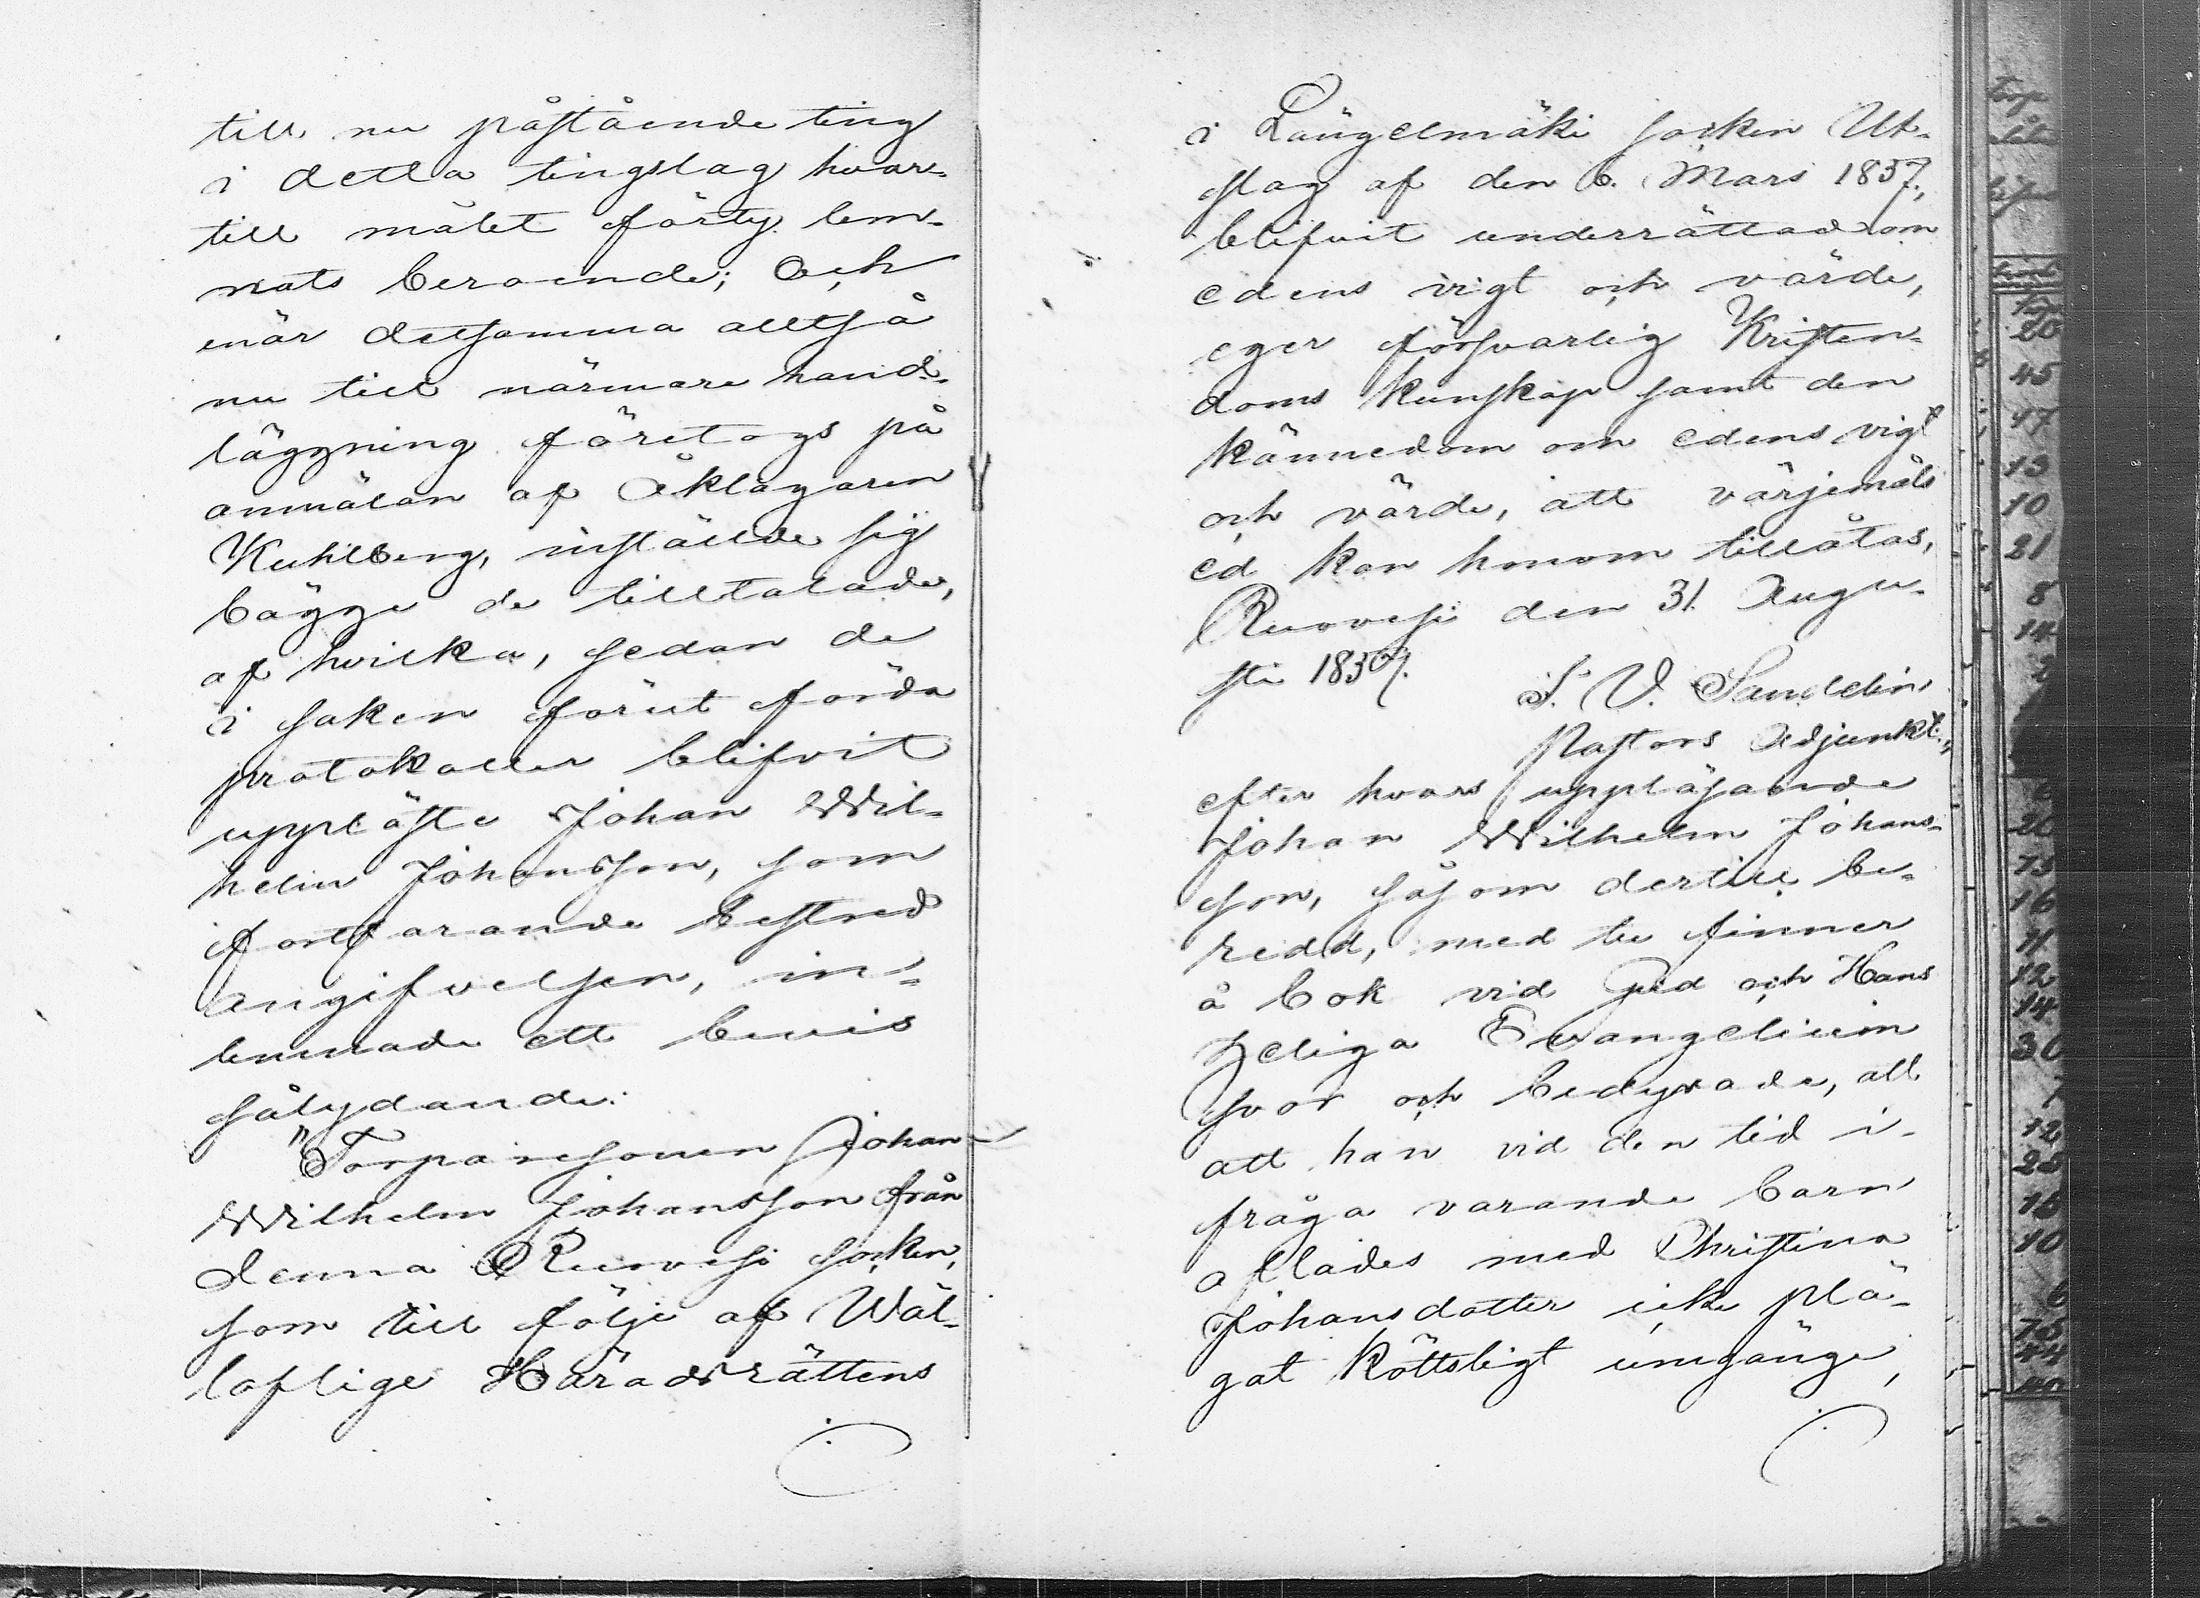 till nu påstående ting
i detta tingslag hvar-
till målet förty lem-
nats beroende; Och
enär detsamma alltså
nu till närmare hand-
läggning företogs på
anmälan af Åklagaren
Kuhlberg, instälde sig
bägge de tilltalade,
af hvilka, sedan de
i saken förut förda
protokoller blifvit
uppläste Johan Wil-
helm Johansson, som
fortfarande bestred
angifvelsen, in-
lemnade ett bevis
sålydande:
"Torparesonen Johan
Wilhelm Johansson från
denna Ruovesi socken,
som till följe af Wäl-
loflige Häradsrättens
i Längelmäki socken Ut-
slag af den 6. Mars 1857,
blifvit underrättad om
edens vigt och värde,
eger försvarlig Kristen-
doms kunskap samt den
kännedom om edens vigt
och värde, att värjemåls
ed kan honom tillåtas,
Ruovesi den 31. Augu-
sti 1857.
S. V. Sandelin
Pastors Adjunkt.,
efter hvars uppläsande
Johan Wilhelm Johans-
son, såsom dertill be-
redd, med tu finner
å bok vid Gud och Hans
heliga Evangelium
svor och bedyrade, att
att han vid den tid i-
fråga varande barn
aflades med Christina
Johansdotter icke plä-
gat köttsligt umgänge,
20
45
47
13
10
21
8
14
2
20
75
16
11
12
14
30
7
12
25
18
10
6